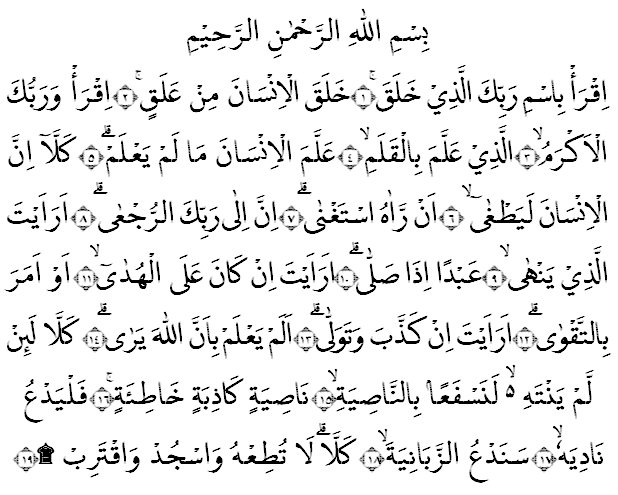 بِسْمِ اللهِ الرَّحْمٰنِ الرَّحِيْمِ
اِقْرَأْ بِاسْمِ رَبِّكَ الَّذِيْ خَلَقَۚ ﴿١﴾ خَلَقَ الْاِنْسَانَ مِنْ عَلَقٍۚ ﴿٢﴾ اِقْرَأْ وَرَبُّكَ
الْاَكْرَمُۙ ﴿٣﴾ الَّذِيْ عَلَّمَ بِالْقَلَمِۙ ﴿٤﴾ عَلَّمَ الْاِنْسَانَ مَا لَمْ يَعْلَمْۗ ﴿٥﴾ كَلَّآ اِنَّ
الْاِنْسَانَ لَيَطْغٰىٓۙ ﴿٦﴾ اَنْ رَّاٰهُ اسْتَغْنٰىۗ ﴿٧﴾ اِنَّ اِلٰى رَبِّكَ الرُّجْعٰىۗ ﴿٨﴾ اَرَاَيْتَ
الَّذِيْ يَنْهٰىۙ ﴿٩﴾ عَبْدًا اِذَا صَلّٰىۗ ﴿١٠﴾ اَرَاَيْتَ اِنْ كَانَ عَلَى الْهُدٰىٓۙ ﴿١١﴾ اَوْ اَمَرَ
بِالتَّقْوٰىۗ ﴿١٢﴾ اَرَاَيْتَ اِنْ كَذَّبَ وَتَوَلّٰىۗ ﴿١٣﴾ اَلَمْ يَعْلَمْ بِاَنَّ اللهَ يَرٰىۗ ﴿١٤﴾ كَلَّا لَئِنْ
لَّمْ يَنْتَهِ ەۙ لَنَسْفَعًاۢ بِالنَّاصِيَةِۙ ﴿١٥﴾ نَاصِيَةٍ كَاذِبَةٍ خَاطِئَةٍۚ ﴿١٦﴾ فَلْيَدْعُ
نَادِيَهٗۙ ﴿١٧﴾ سَنَدْعُ الزَّبَانِيَةَۙ ﴿١٨﴾ كَلَّاۗ لَا تُطِعْهُ وَاسْجُدْ وَاقْتَرِبْ ۩ ﴿١٩﴾